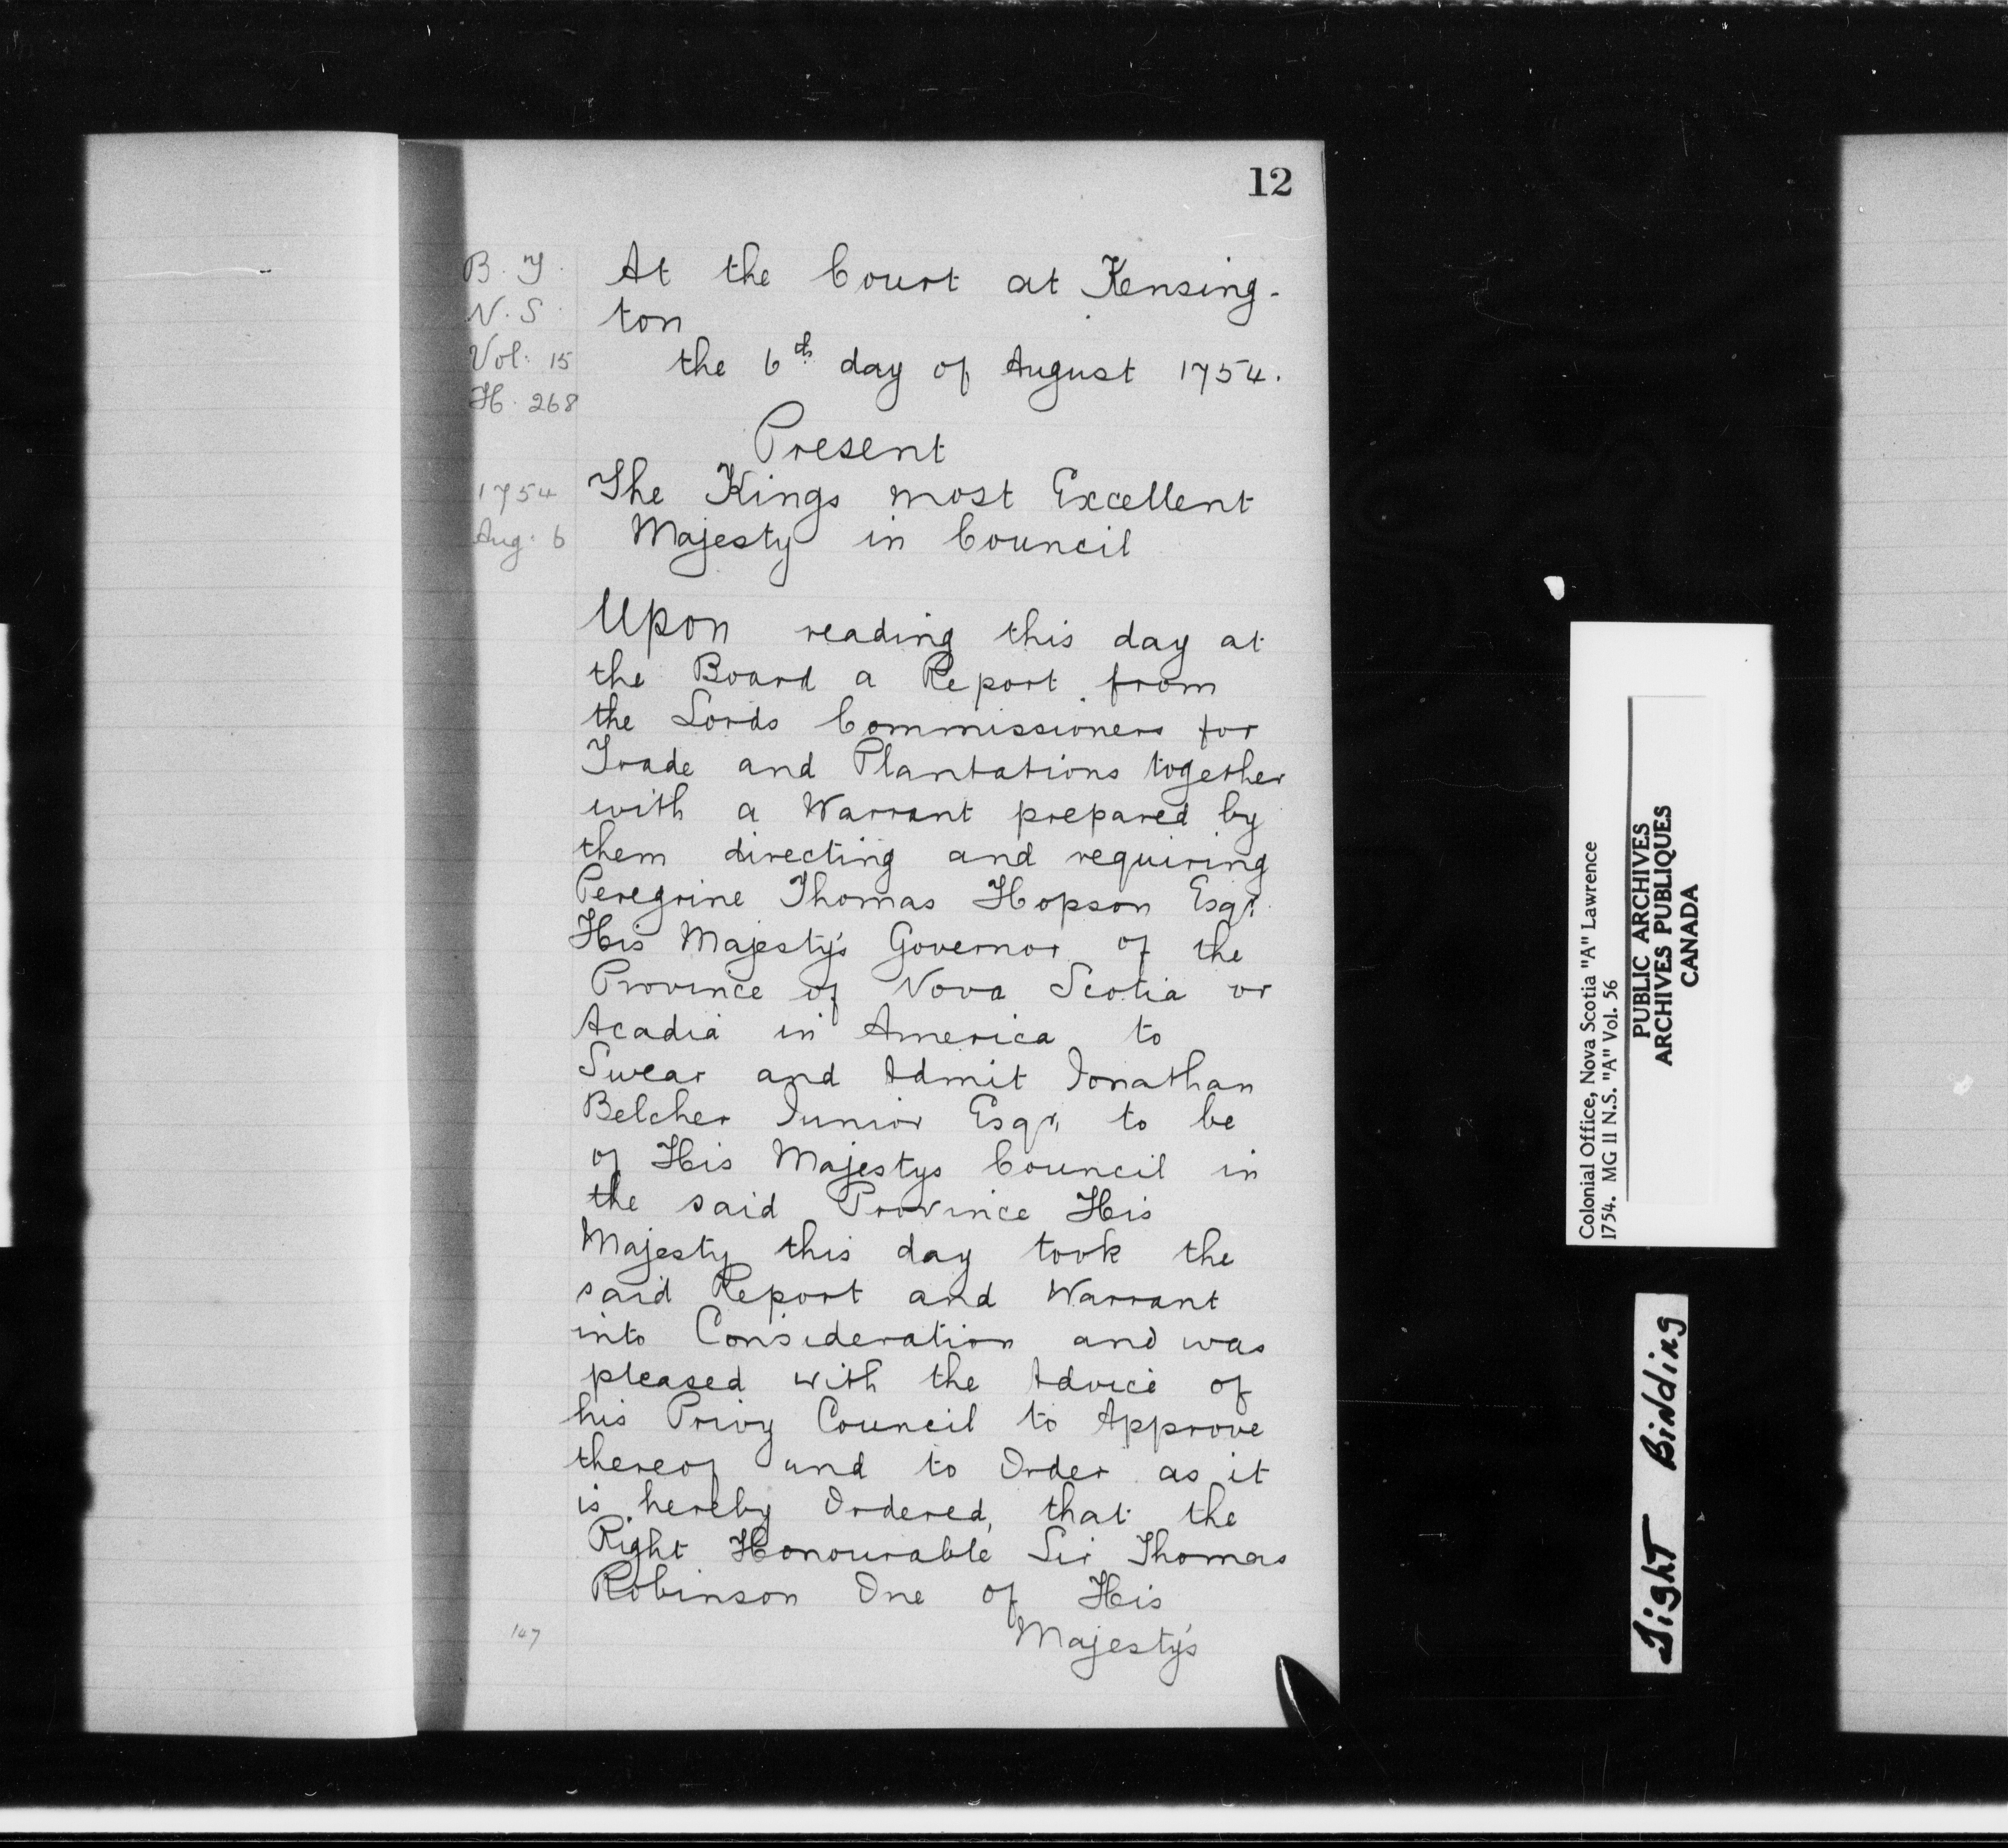 12
B. T.
N. S.
Vol. 15
H. 268
1754
Aug. 6
At the Court at Kensing-
ton
the 6th day of August 1754.
Present
The Kings most Excellent
Majesty in Council
Upon reading this day at
the Board a Report from
the Lords Commissioners for
Trade and Plantations together
with a Warrant prepared by
them directing and requiring
Peregrine Thomas Hopson Esqr.
His Majesty's Governor of the
Province of Nova Scotia or
Acadia in America to
Swear and Admit Jonathan
Belcher Junior Esqr. to be
of His Majestys Council in
the said Province His
Majesty this day took the
said Report and Warrant
into Consideration and was
pleased with the Advice of
his Privy Council to Approve
thereof and to Order as it
is hereby Ordered, that the
Right Honourable Sir Thomas
Robinson One of His
Majesty's
107
Colonial Office, Nova Scotia "A" Lawrence
1754. MG II N.S. "A" Vol. 56
PUBLIC ARCHIVES
ARCHIVES PUBLIQUES
CANADA
Tight Bidding